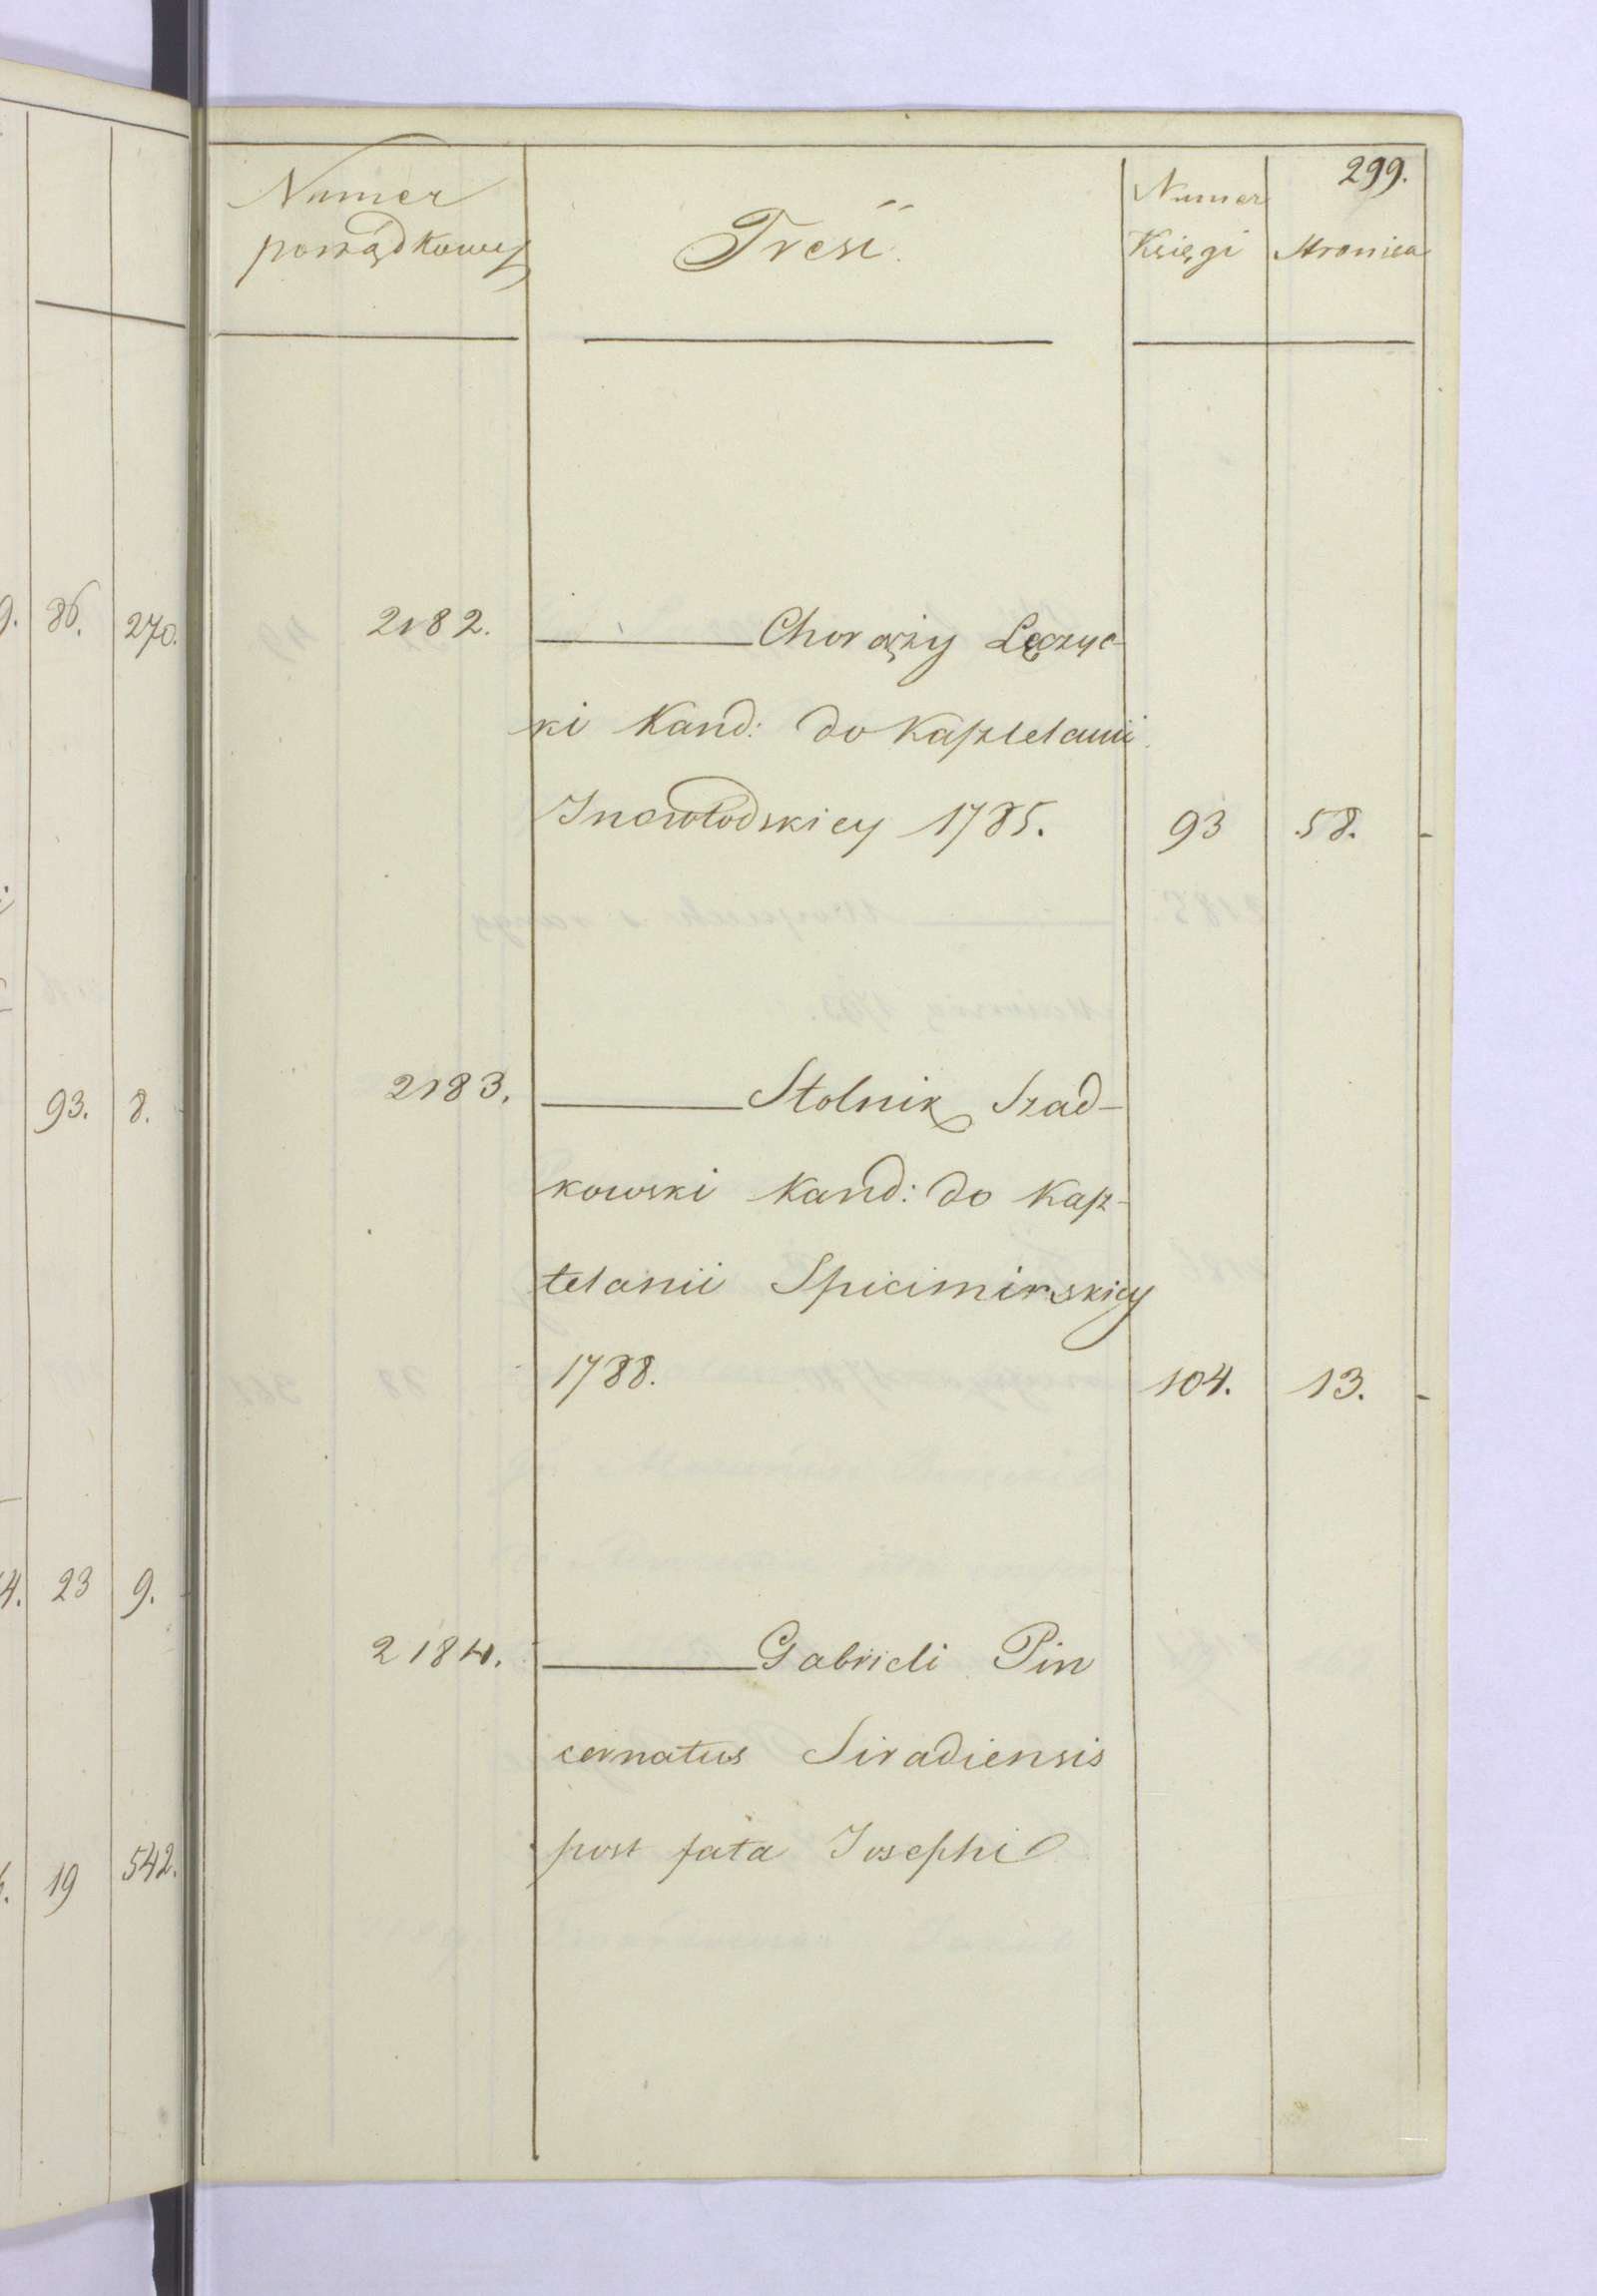 299.
Numer porządkowy
Treść
Numer Księgi
Stronica
9. 86. 270.
93. 8.
4. 23 9.
19 542.
2182. ——— Chorąży Łęczyc-
ki Kand: do Kasztelanii
Inowłodskiey 1785. 93 58.
2183. ——— Stolnik Szad-
kowski Kand: do Kasz-
telanii Spicimirskiey
1788. 104. 13.
2184. ——— Gabrieli Pin
cernatus Siradiensis
post fata Josephi